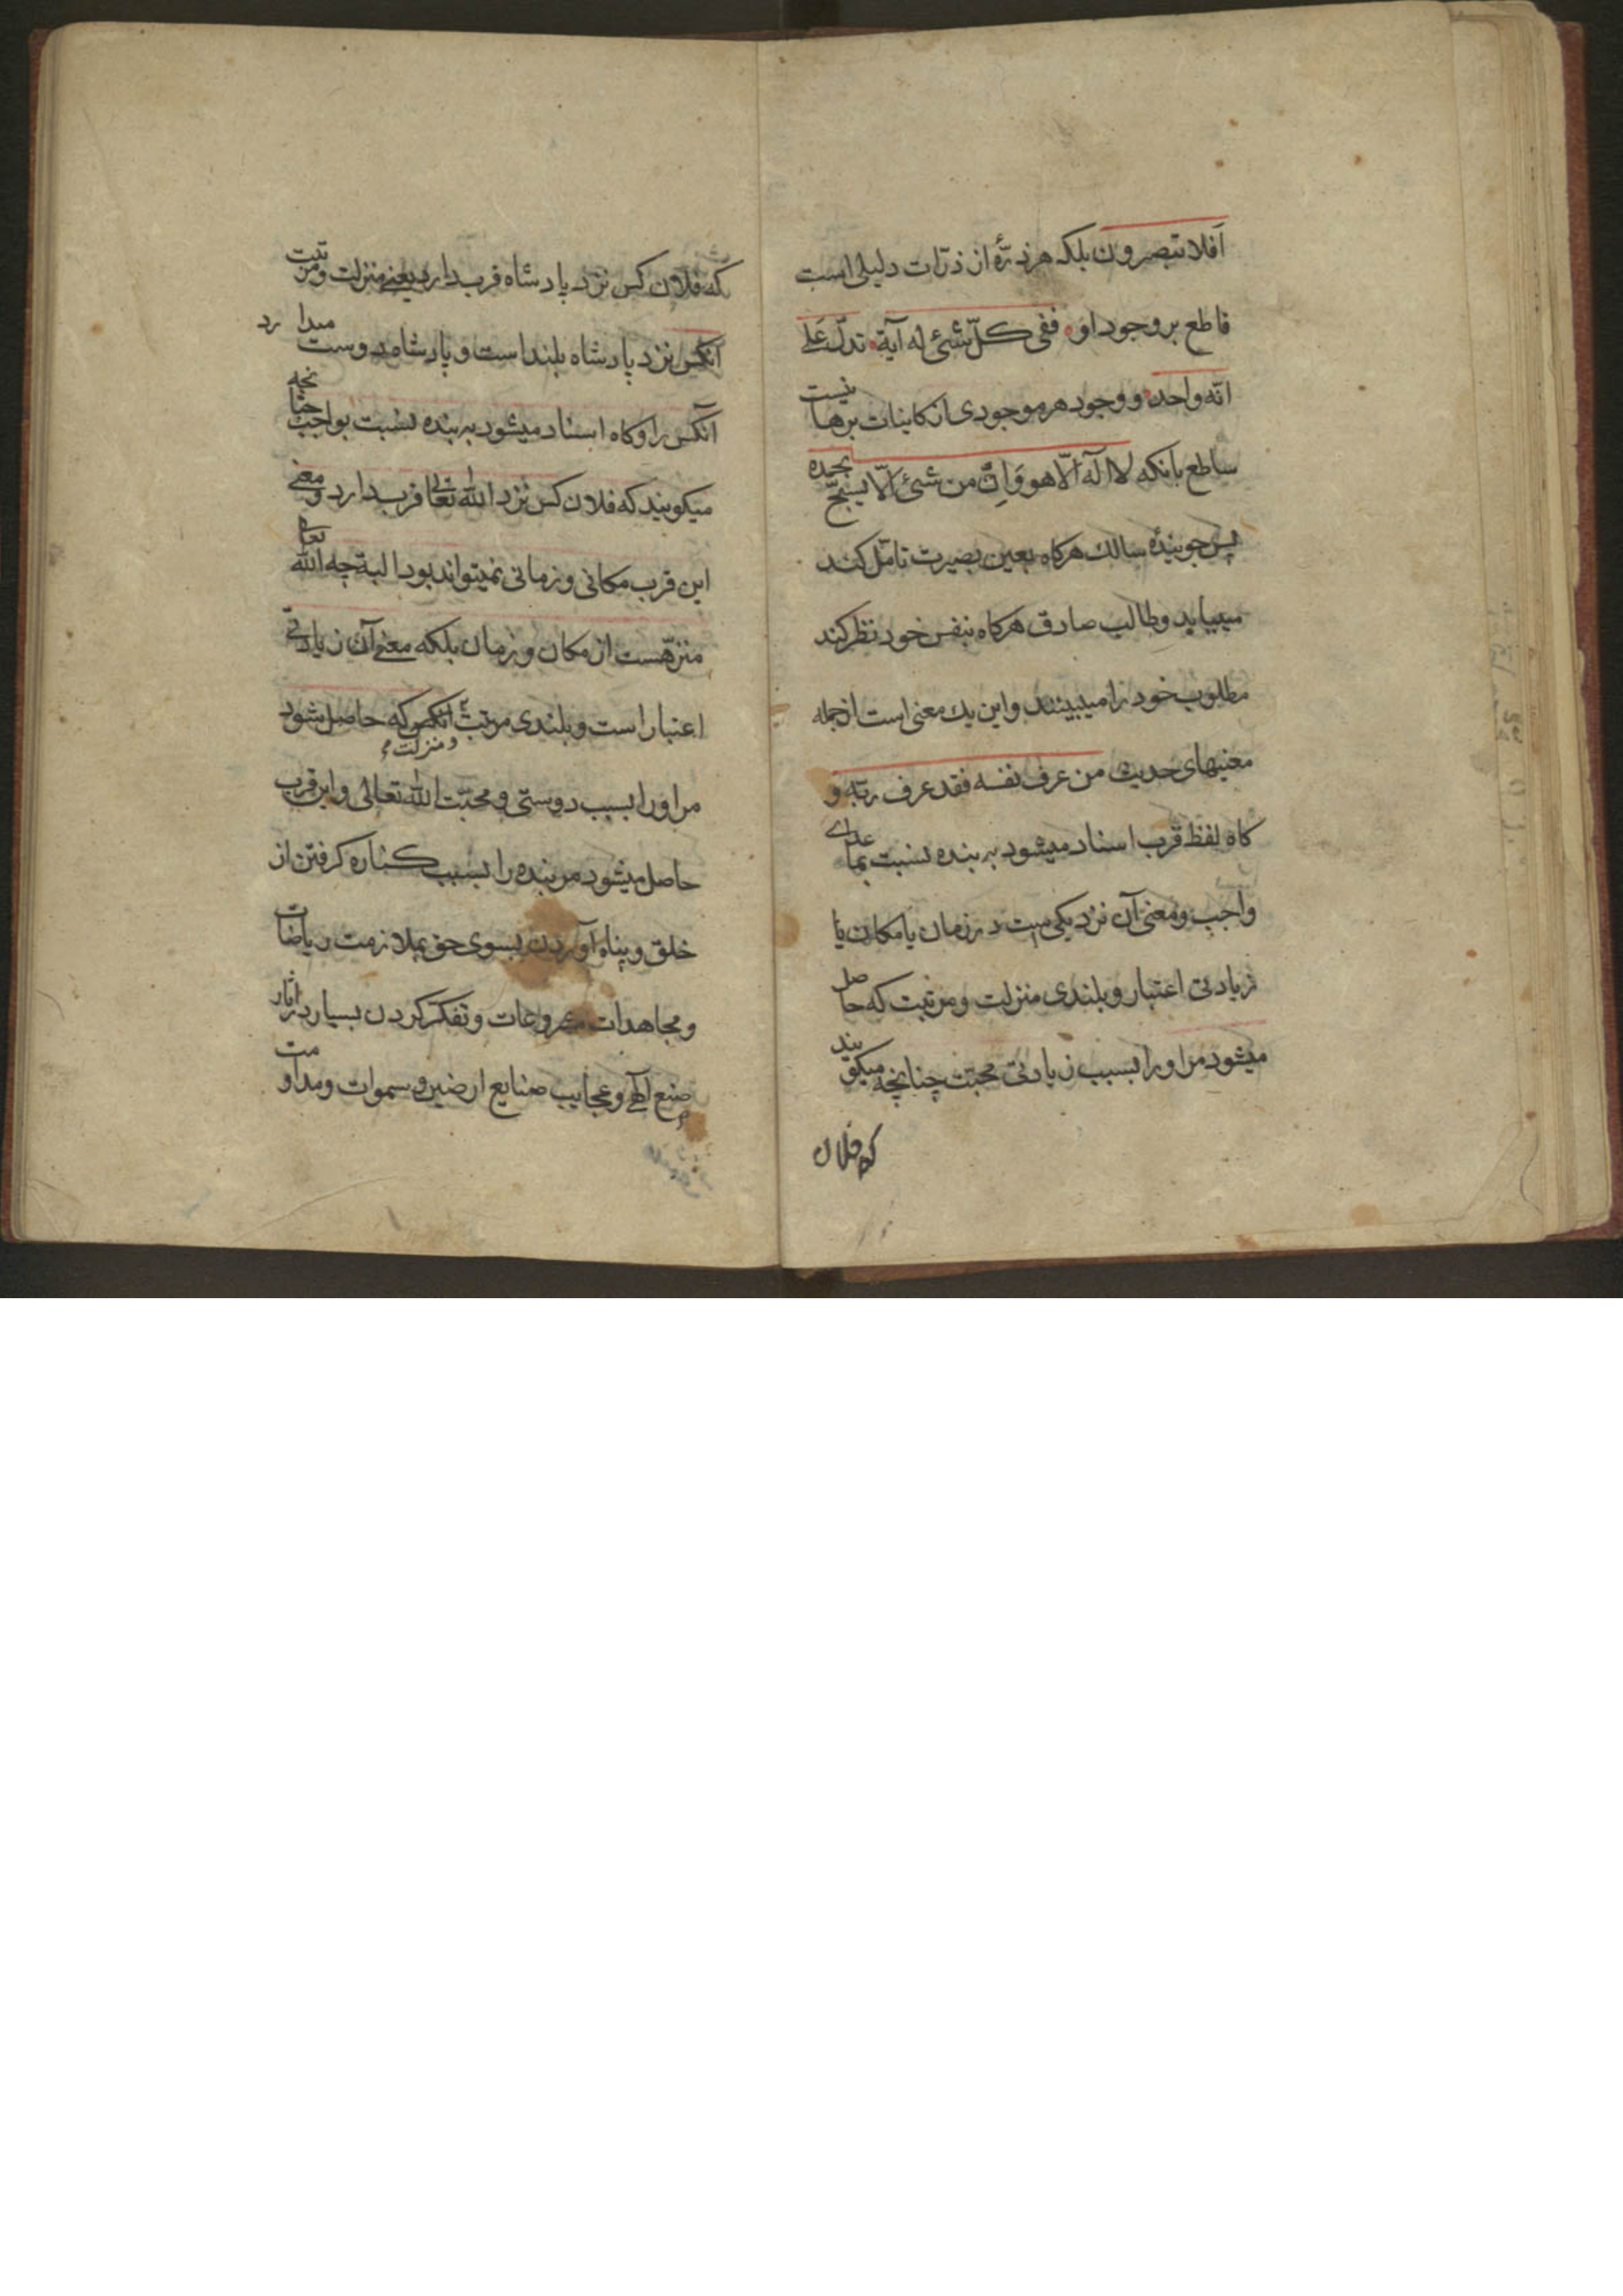 اَفلا تبصرون بلکه هر ذرّهٔ از ذرّات دلیلی است
قاطع بر وجود او ففی کلّ شئ له آیة تدلّ عَلے
انّه واحد و وجود هر موجودی از کاینات برهانیست
ساطع بانکه لا اله الّا هو وَاِن من شئ الّا یسبّح بحمده
پس جویندهٔ سالك هرکاه بعین بصیرت تامّل کند
میبیابد وطالب صادق هرکاه بنفس خود نظر کند
مطلوب خود را میبینند و این یك معنی است از جمله
معنیهای حدیث من عرف نفسه فقد عرف ربّه و
کاه لفظ قرب اسناد میشود به بنده نسبت بماعدای
واجب ومعنی آن نزدیکی است در زمان یا مکان یا
زیادتی اعتبار و بلندی منزلت ومرتبت که حاصل
میشود مر اورا بسبب زیادتی محبّت چنانچه میکویند
که فلان
که فلان کس نزد پادشاه قرب دارد یعنے منزلت ومرتبت
آنکس نزد پادشاه بلند است و پادشاه دوست میدارد
آنکس را وکاه اسناد میشود به بنده نسبت بواجب چنانچه
میکویند که فلان کس نزد الله تعالی قرب دارد و معنے
این قرب مکانی و زمانی نمیتواند بود البة چه الله تعا
منزّهست از مکان و زمان بلکه معنے آن زیادتی
اعتبار است و بلندی مرتبت و منزلت آنکس که حاصل شود
مر اورا بسبب دوستی و محبّت الله تعالی و این قرب
حاصل میشود مر بنده را بسبب کناره کرفتن از
خلق و پناه آوردن بسوی حق بملازمت ریاضات
ومجاهدات و تفکّر کردن بسیار در آثار
صنع آلهے و عجایب صنایع ارضین و سموات و مداومت